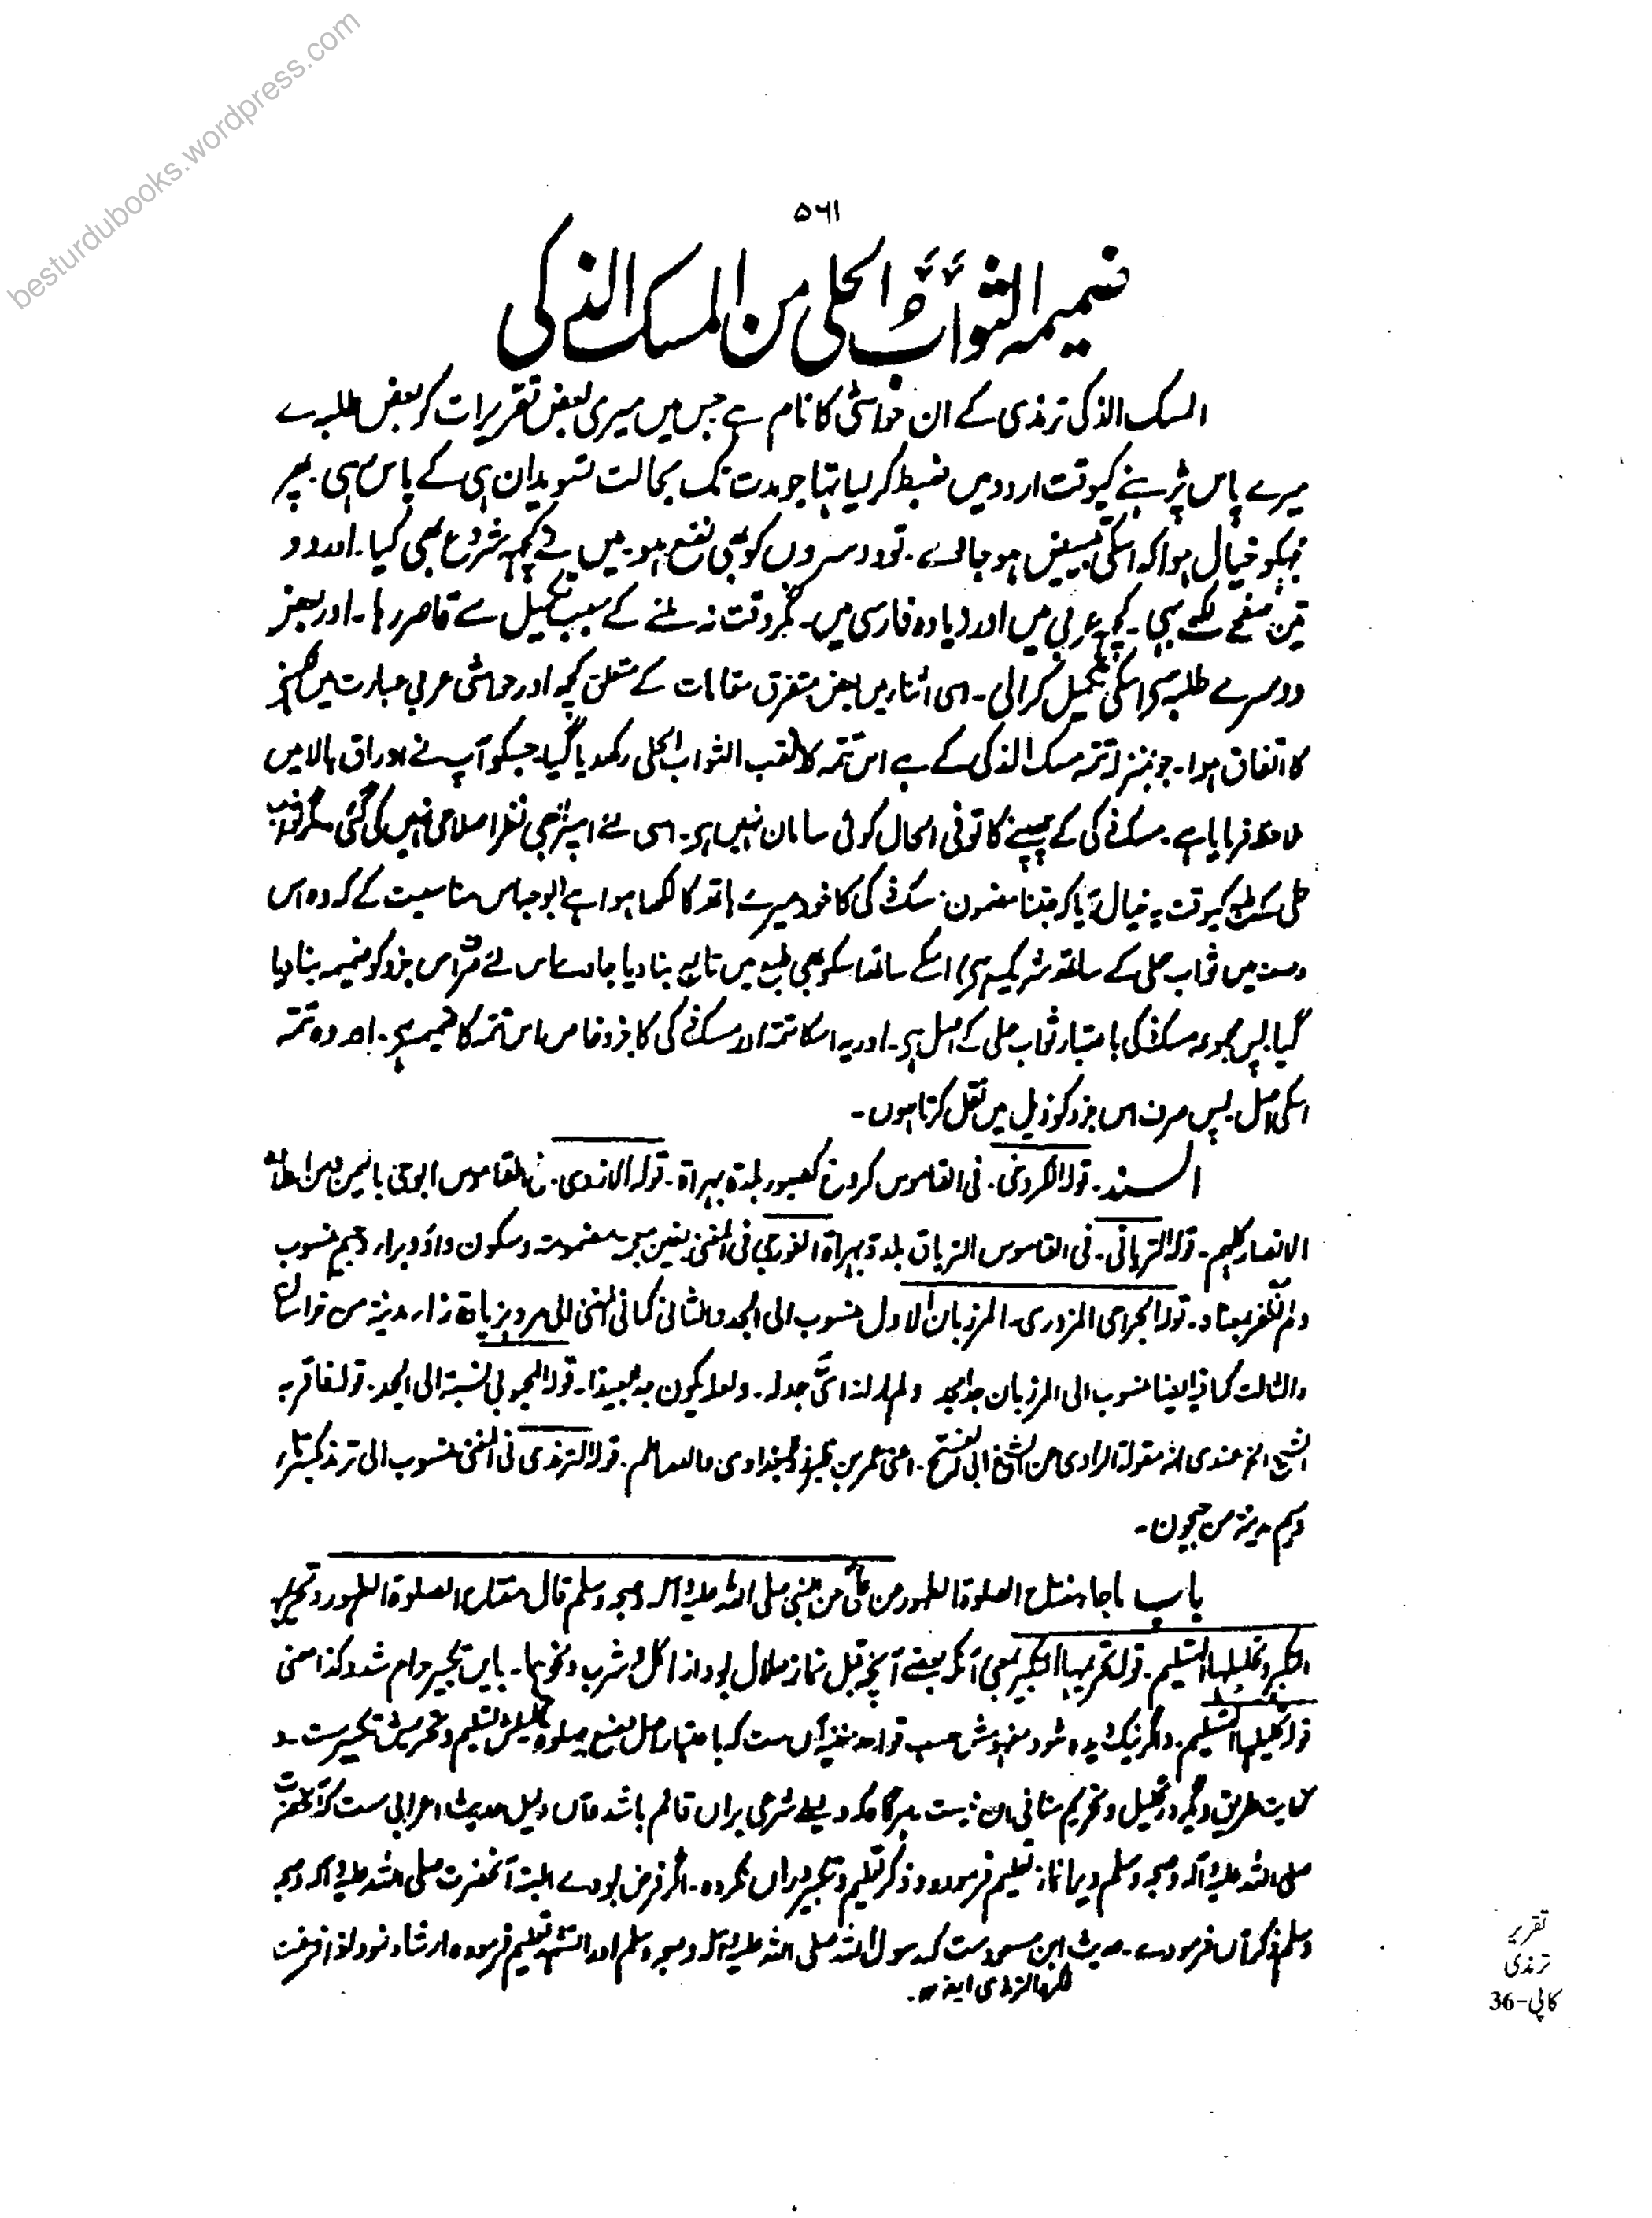 besturdubooks.wordpress.com
۵۶۱
ضمیمہ الثواب الحلی من المسک الذکی
المسک الذکی ترمذی کے ان حواشی کا نام ہے جس میں میری بعض تقریرات کو بعض طلبہ نے
میرے پاس پڑہنے کیوقت اردو میں ضبط کر لیا تہا جو مدت تک بحالت تسوید ان ہی کے پاس رہی۔ پہر
مجہکو خیال ہوا کہ اسکی تبییض ہو جاوے۔ تو دوسروں کو بھی نفع ہو۔ میں نے کچہہ شروع بھی کیا۔ اور دو
تین صفحے لکھے بہی۔ کچھ عربی میں اور زیادہ فارسی میں۔ مگر وقت نہ ملنے کے سبب تکمیل سے قاصر رہا۔ اور بعض
دوسرے طلبہ سے اسکی تکمیل کرالی۔ اسی اثنا میں بعض متفرق مقامات کے متعلق کچھ اور حواشی عربی عبارت میں لکہنے
کا اتفاق ہوا۔ جو بمنزلہ تتمہ مسک الذکی کے ہے اس تتمہ کا لقب الثواب الحلی رکھدیا گیا۔ جسکو آپ نے اوراق بالا میں
ملاحظہ فرمایا ہے۔ مسک ذکی کے چھپنے کا تو فی الحال کوئی سامان نہیں ہے۔ اسی لئے اسپر بھی نظر اصلاحی نہیں کی گئی مگر ثواب
حلی کے طبع کیوقت یہ خیال آیا کہ جتنا مضمون مسک ذکی کا خود میرے ہاتھ کا لکھا ہوا ہے بوجہ اس مناسبت کے کہ وہ اس
وصف میں ثواب حلی کے ساتھ شریک ہے اسکے ساتھ اسکو بھی طبع میں تابع بنا دیا جاوے اس لئے اس جزو کو ضمیمہ بنا دیا
گیا۔ پس مجموعہ مسک ذکی باعتبار ثواب حلی کے اصل ہے۔ اور یہ اسکا تتمہ اور مسک ذکی کا جزو خاص اس تتمہ کا ضمیمہ ہے۔ اور وہ تتمہ
اسکی اصل۔ پس صرف اس جزو کو ذیل میں نقل کرتا ہوں۔
السند۔ قولہ الکروخی۔ فی القاموس کروخ کصبور بلدۃ بہراۃ۔ قولہ الازدی۔ فی القاموس ابو حی بالیمن ومن اولادہ
الانصار کلہم۔ قولہ التریاقی۔ فی القاموس التریاق بلدۃ بہراۃ الغورجی فی المغنی بغین معجمۃ مضمومۃ وسکون واؤ وبراء وجیم منسوب
ولم اظفر بمعناہ۔ قولہ الجراحی المروزی۔ المرزبان الاول منسوب الی الجد والثانی کما فی المغنی الی مرو بزیادۃ زاء مدینۃ من خراسان
والثالث کما فیہ ایضا منسوب الی المرزبان جد ابیہ ولم ار انہ ای جد لہ۔ ولعلہ یکون جدا بعیدا۔ قولہ المحبوبی نسبۃ الی الجد۔ قولہ فاقر بہ
الشیخ الخ عندی انہ مقولۃ الراوی عن الشیخ ابی الفتح۔ اعنی عمر بن طبرزد البغدادی واللہ اعلم۔ قولہ الترمذی فی المغنی منسوب الی ترمذ بکسر تاء
ومیم مدینۃ من جیحون۔
باب ماجاء مفتاح الصلوۃ الطہور من علی عن النبی صلی اللہ علیہ وآلہ وصحبہ وسلم قال مفتاح الصلوۃ الطہور وتحریمہا
التکبیر وتحلیلہا التسلیم۔ قولہ تحریمہا التکبیر یعنی آنکہ بعضے آنچہ قبل نماز حلال بود از اکل و شرب ونحوہما۔ بایں تکبیر حرام شد وکذا معنی
قولہ تحلیلہا التسلیم۔ واگر نیک دیدہ شود مفہومش حسب قواعد حنفیہ آن ست کہ باعتبار اصل وضع صلوۃ تحلیلش تسلیم وتحریمش تکبیر ست۔ و
کفایت طریق دیگر در تحلیل و تحریم منافی ان نیست ہرگاہ کہ دلیلے شرعی براں قائم باشد واں دلیل حدیث اعرابی ست کہ آنحضرت
صلی اللہ علیہ وآلہ وصحبہ وسلم ویرا نماز تعلیم فرمودہ وذکر تسلیم وتکبیر دراں نکردہ۔ اگر فرض بودے البتہ آنحضرت صلی اللہ علیہ وآلہ وصحبہ
وسلم ذکر آں فرمودے۔ حدیث ابن مسعود ست کہ رسول اللہ صلی اللہ علیہ وآلہ وصحبہ وسلم اورا تشہد تعلیم فرمودہ ارشاد نمود لواذا فرغت
الترمذی ایضا ۱۲۔
تقریر
ترمذی
کاپی-36